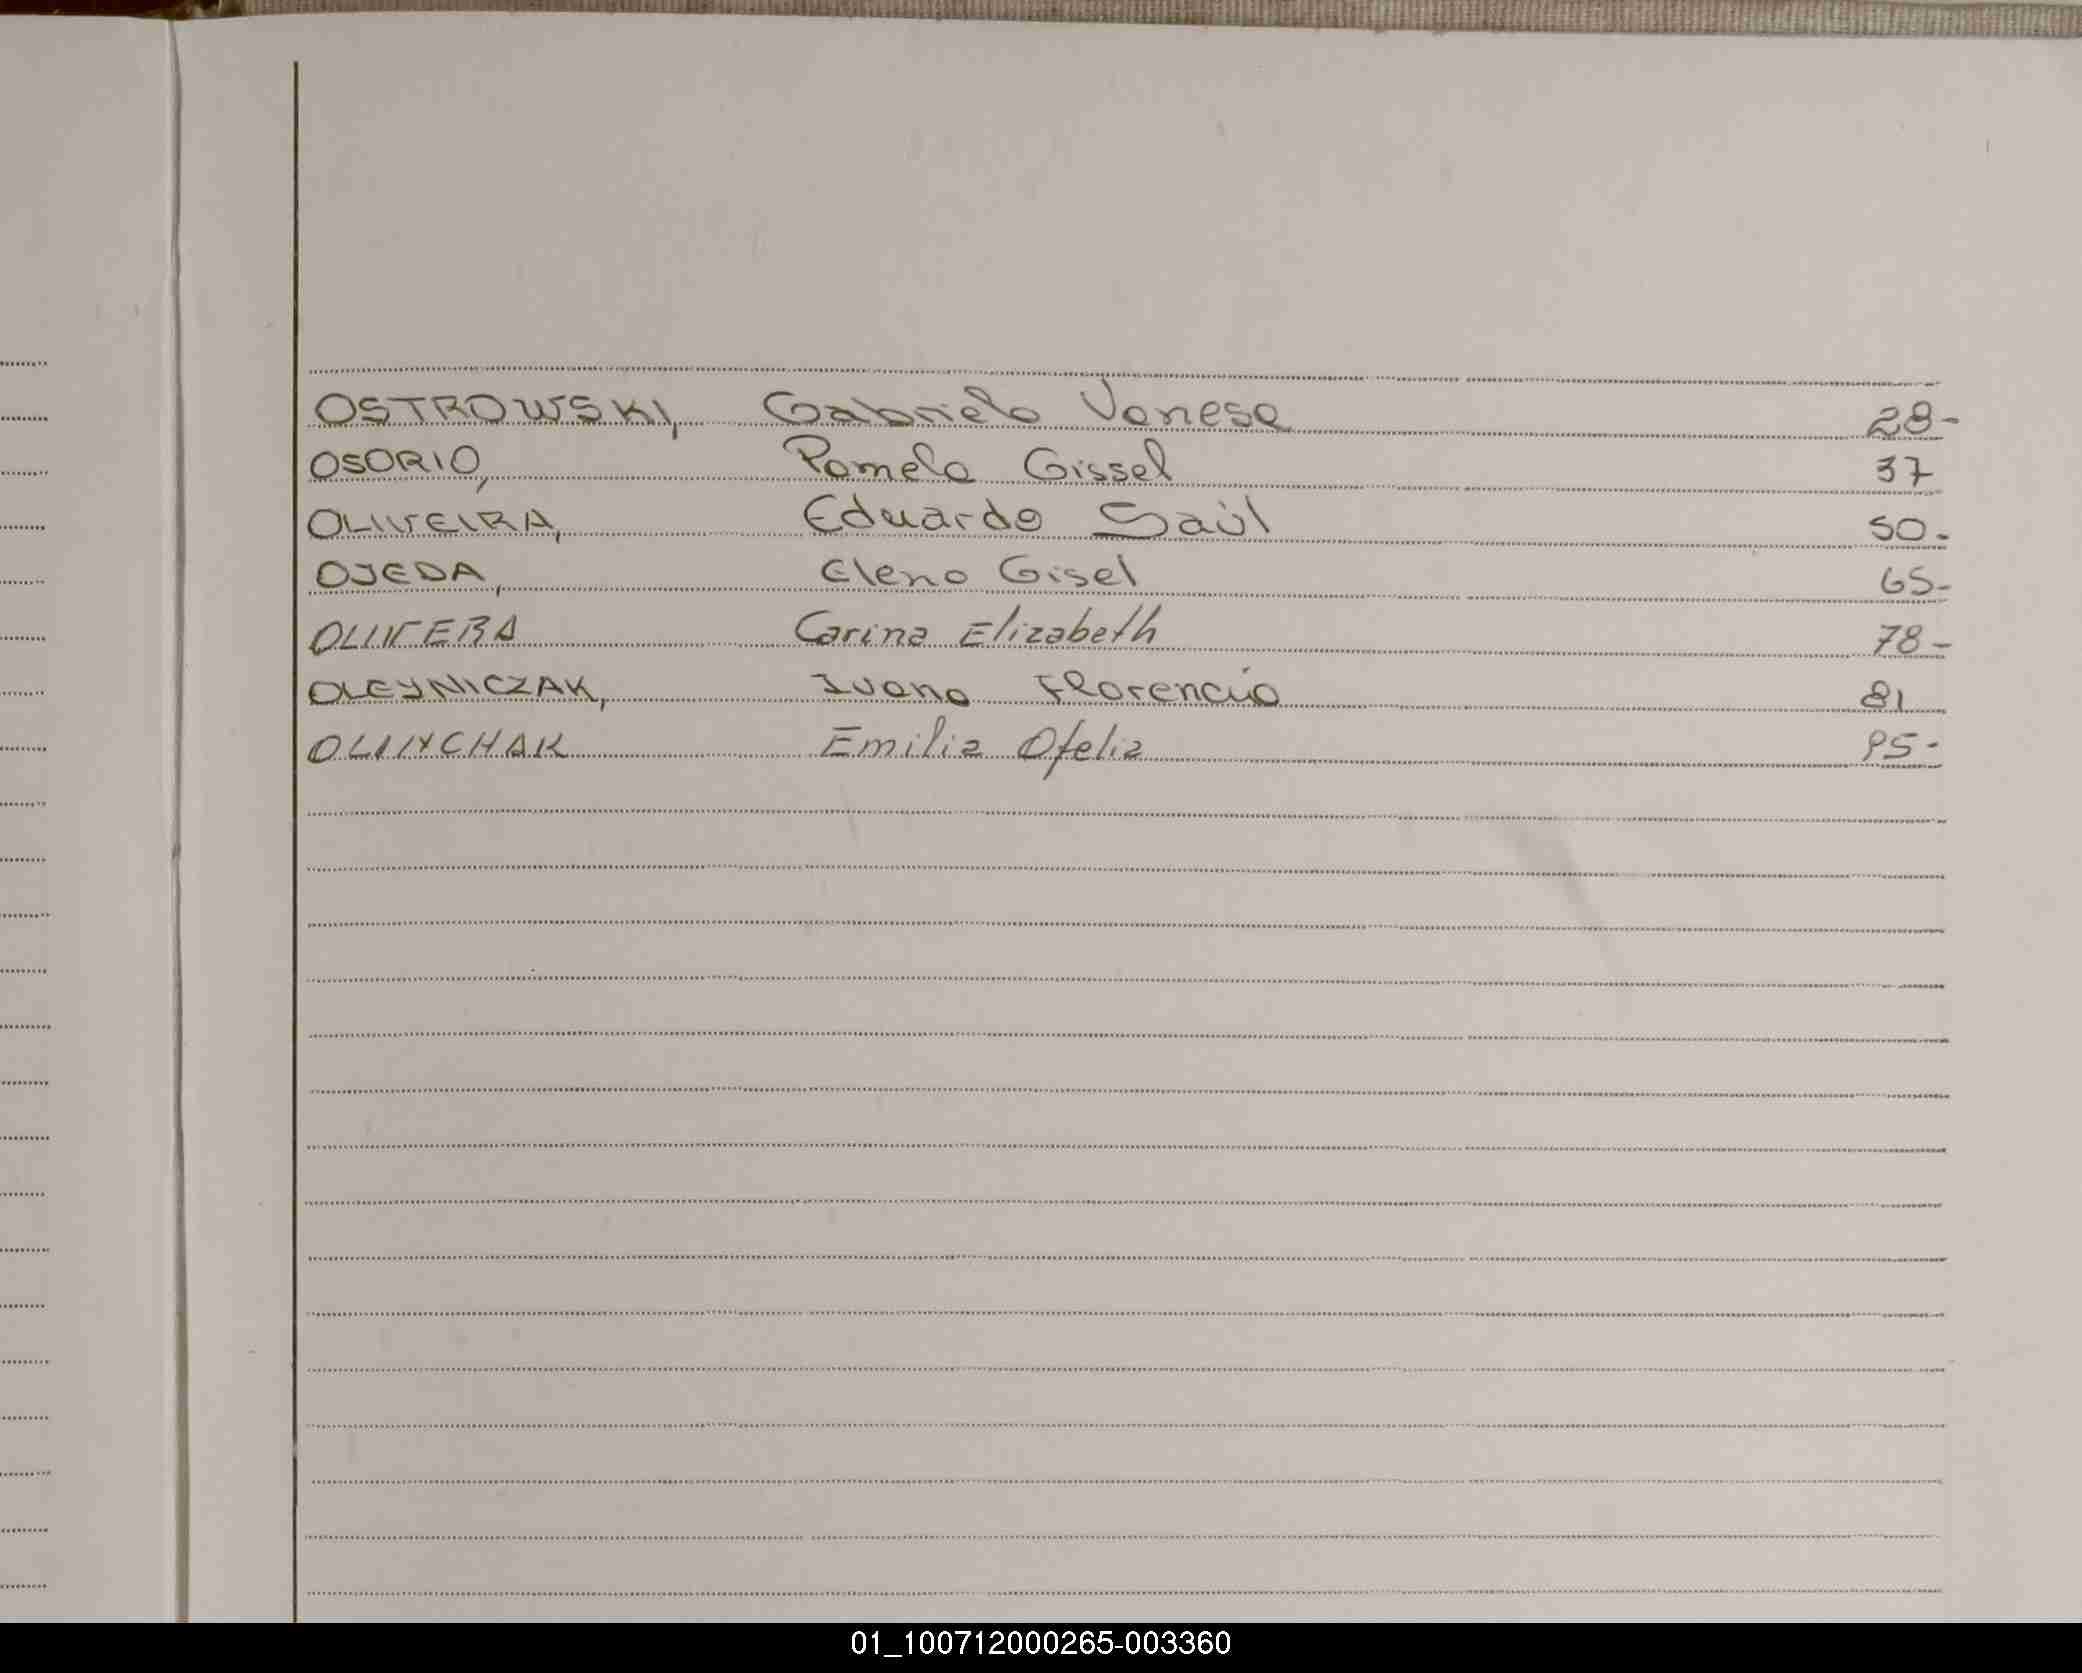 OSTROWSKI, Gabriela Vanesa 28-
OSORIO, Pamela Gissel 37
OLIVEIRA, Eduardo Saúl 50-
OJEDA, Elena Gisel 65-
OLIVERA Carina Elizabeth 78-
OLEYNICZAK, Ivana Florencia 81
Emilia Ofelia 95-
01_100712000265-003360